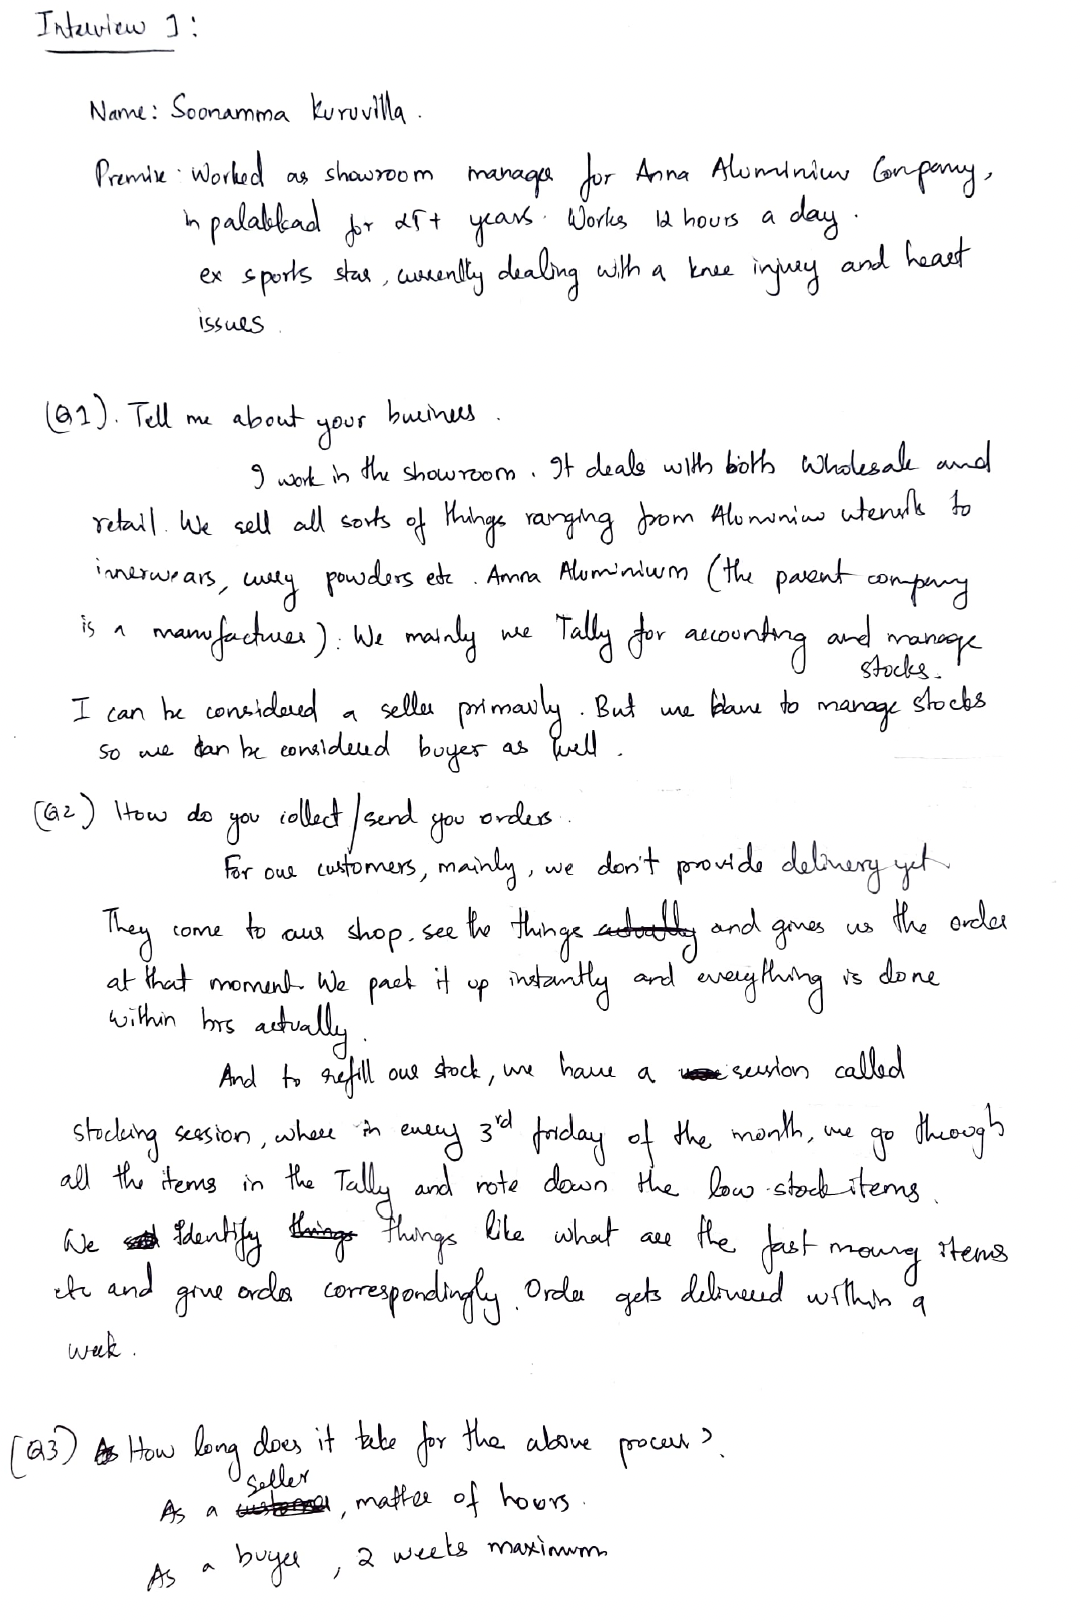 Interview 1:
Name: Soonamma Kuruvilla.
Premise: Worked as showroom manager for Anna Aluminium Company,
in palakkad for 25+ years. Works 12 hours a day.
ex sports star, currently dealing with a knee injury and heart
issues.
(Q1). Tell me about your business.
I work in the showroom. It deals with both wholesale and
retail. We sell all sorts of things ranging from Aluminium utensils to
innerwears, curry powders etc. Anna Aluminium (the parent company
is a manufacturer). We mainly use Tally for accounting and manage
stocks.
I can be considered a seller primarily. But we have to manage stocks
so we can be considered buyer as well.
(Q2) How do you collect/send you orders.
For our customers, mainly, we don't provide delivery yet
They come to our shop, see the things actually and gives us the order
at that moment. We pack it up instantly and everything is done
within hrs actually.
And to refill our stock, we have a session called
stocking session, where in every 3rd friday of the month, we go through
all the items in the Tally and note down the low-stock items.
We Identify things things like what are the fast moving items
etc and give order correspondingly. Order gets delivered within a
week.
(Q3) How long does it take for the above process?
seller
As a customer, matter of hours.
As a buyer, 2 weeks maximum